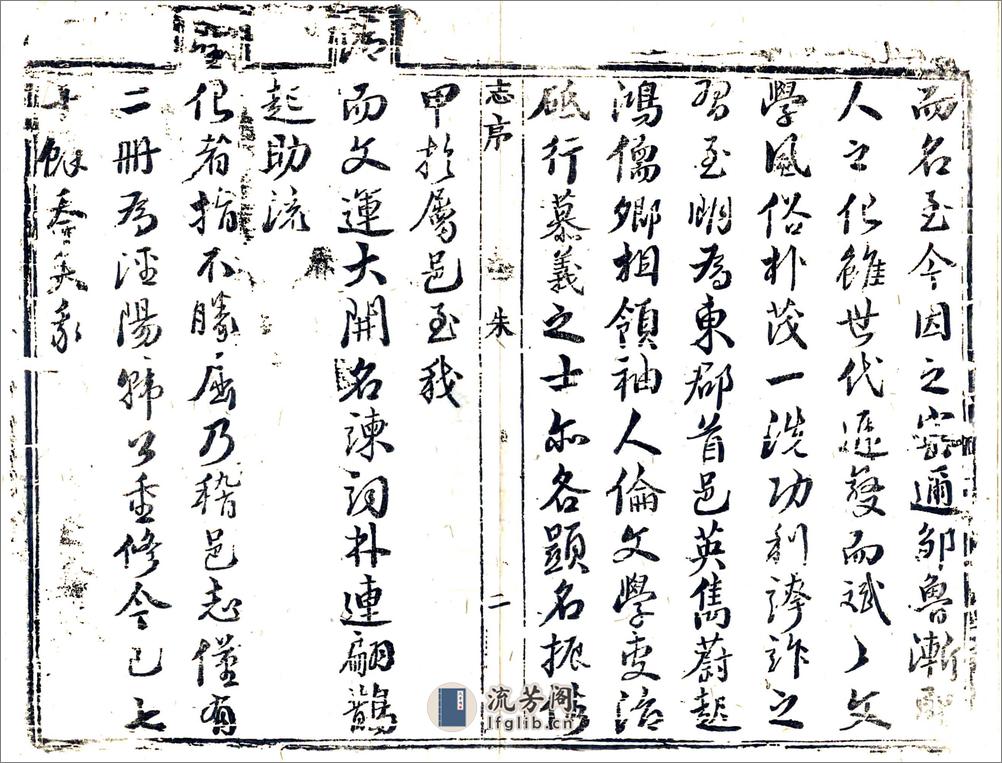 而名至今因之密邇鄒魯漸
人之化雖世代遞變而斌〻文
學風俗朴茂一洗功利誇詐之
習至明為東郡首邑英雋蔚起
鴻儒卿相領袖人倫文學吏治
砥行慕義之士亦各顯名振
志序 朱 二
甲於屬邑至我
清
而文運大開名諫詞林連翩鵲
起助流
聖
化者指不勝屈乃稽邑志僅有
二冊為涇陽韓公重修今已七
十餘春矣豕
流芳阁
lfglib.cn